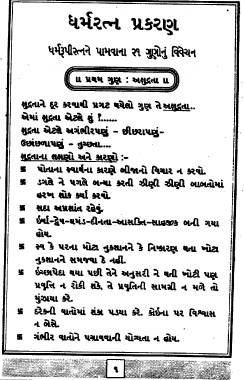 ધર્મરત્ન પ્રકરણ
ધર્મરૂપીરત્નને પામવાના ૨૧ ગુણોનું વિવેચન
॥ પ્રથમ ગુણ : અક્ષુદ્રતા ॥
ક્ષુદ્રતાને દૂર કરવાથી પ્રગટ થયેલો ગુણ તે અક્ષુદ્રતા..
એમાં ક્ષુદ્રતા એટલે શું ?......
ક્ષુદ્રતા એટલે અગંભીરપણું - છીછરાપણું-
ઉછાંછળાપણું - તુચ્છતા....
ક્ષુદ્રતાના લક્ષણો અને કારણો :-
પોતાના સ્વાર્થના કારણે બીજાનો વિચાર ન કરવો.
ડગલે ને પગલે બન્યા કરતી ઝીણી ઝીણી બાબતોમાં
હરખ શોક કર્યા કરવો.
સદા અપ્રશાંત રહેવું.
ઇર્ષા-દ્વેષ-ઘમંડ-દીનતા-આસક્તિ-સાહજક બની ગયા
હોય.
સ્વ કે પરના મોટા નુકશાનને કે નિષ્કારણ થતા ખોટા
નુકશાનને સમજવા દે નહી.
ઇચ્છાપેદા થયા પછી તેને અનુસરી ને થતી ખોટી પણ
પ્રવૃત્તિ ન રોકી શકે, તે પ્રવૃત્તિની સામગ્રી ન મળે તો
મુંઝાયા કરે.
દરેકની વાતોમાં શંકા પડયા કરે. કોઇના પર વિશ્વાસ
ન બેસે.
ગંભીર વાતોને પચાવવાની યોગ્યતા ન હોય.
૧